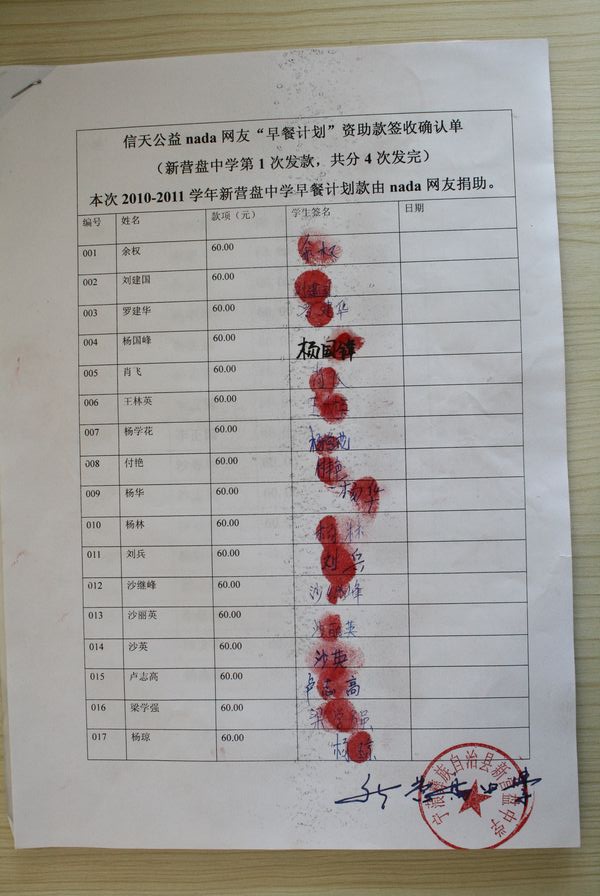 信天公益 nada 网友“早餐计划”资助款签收确认单
（新营盘中学第 1 次发款，共分 4 次发完）
本次 2010-2011 学年新营盘中学早餐计划款由 nada 网友捐助。
编号 姓名 款项（元） 学生签名 日期
001 余权 60.00 余权
002 刘建国 60.00 刘建国
003 罗建华 60.00 建华
004 杨国峰 60.00 杨国锋
005 肖飞 60.00
006 王林英 60.00
007 杨学花 60.00 杨学花
008 付艳 60.00 付艳
009 杨华 60.00 杨华
010 杨林 60.00 杨林
011 刘兵 60.00 刘兵
012 沙继峰 60.00 沙继峰
013 沙丽英 60.00 沙丽英
014 沙英 60.00 沙英
015 卢志高 60.00 卢志高
016 梁学强 60.00 梁学强
017 杨琼 60.00 杨琼
宁蒗彝族自治县新营盘中学